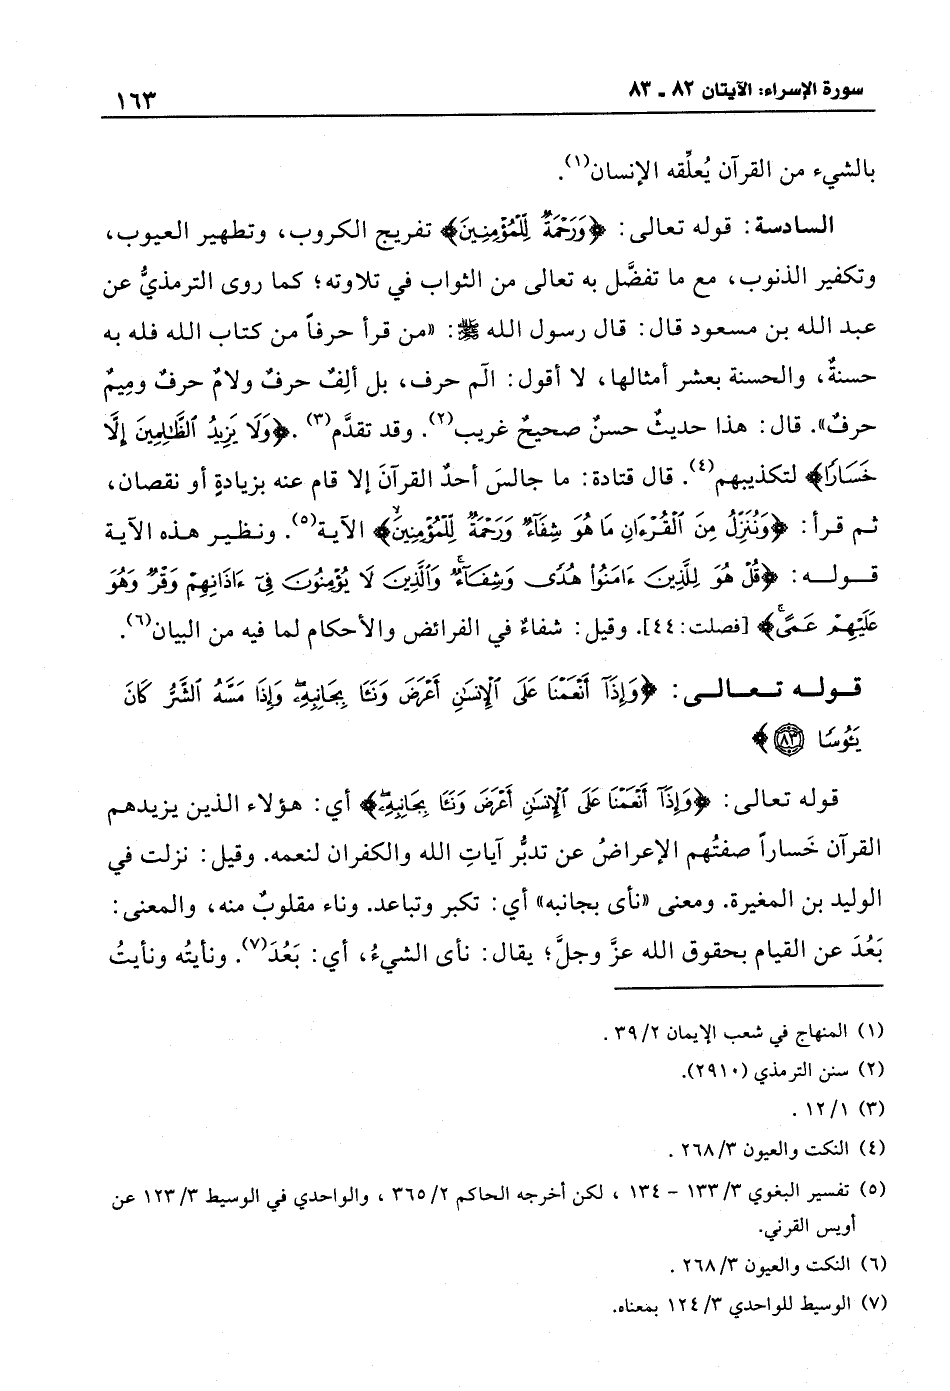 سورة الإسراء: الآيتان ٨٢ ـ ٨٣
١٦٣
بالشيء من القرآن يُعلِّقه الإنسان(١).
السادسة: قوله تعالى: ﴿وَرَحْمَةٌ لِّلْمُؤْمِنِينَ﴾ تفريج الكروب، وتطهير العيوب،
وتكفير الذنوب، مع ما تفضَّل به تعالى من الثواب في تلاوته؛ كما روى الترمذيُّ عن
عبد الله بن مسعود قال: قال رسول الله ﷺ: «من قرأ حرفاً من كتاب الله فله به
حسنةٌ، والحسنة بعشر أمثالها، لا أقول: الٓم حرف، بل ألِفٌ حرفٌ ولامٌ حرفٌ ومِيمٌ
حرفٌ». قال: هذا حديثٌ حسنٌ صحيحٌ غريب(٢). وقد تقدَّم(٣). ﴿وَلَا يَزِيدُ ٱلظَّٰلِمِينَ إِلَّا
خَسَارًا﴾ لتكذيبهم(٤). قال قتادة: ما جالسَ أحدٌ القرآنَ إلا قام عنه بزيادةٍ أو نقصان،
ثم قرأ: ﴿وَنُنَزِّلُ مِنَ ٱلْقُرْءَانِ مَا هُوَ شِفَآءٌ وَرَحْمَةٌ لِّلْمُؤْمِنِينَۙ﴾ الآية(٥). ونظير هذه الآية
قوله: ﴿قُلْ هُوَ لِلَّذِينَ ءَامَنُوا۟ هُدًى وَشِفَآءٌۚ وَٱلَّذِينَ لَا يُؤْمِنُونَ فِىٓ ءَاذَانِهِمْ وَقْرٌ وَهُوَ
عَلَيْهِمْ عَمًىۚ﴾ [فصلت: ٤٤]. وقيل: شفاءٌ في الفرائض والأحكام لما فيه من البيان(٦).
قوله تعالى: ﴿وَإِذَآ أَنْعَمْنَا عَلَى ٱلْإِنسَٰنِ أَعْرَضَ وَنَـَٔا بِجَانِبِهِۦۖ وَإِذَا مَسَّهُ ٱلشَّرُّ كَانَ
يَـُٔوسًا ٨٣﴾
قوله تعالى: ﴿وَإِذَآ أَنْعَمْنَا عَلَى ٱلْإِنسَٰنِ أَعْرَضَ وَنَـَٔا بِجَانِبِهِۦۖ﴾ أي: هؤلاء الذين يزيدهم
القرآن خَساراً صفتُهم الإعراضُ عن تدبُّر آياتِ الله والكفران لنعمه. وقيل: نزلت في
الوليد بن المغيرة. ومعنى «نأى بجانبه» أي: تكبر وتباعد. وناء مقلوبٌ منه، والمعنى:
بَعُدَ عن القيام بحقوق الله عزَّ وجلَّ؛ يقال: نأى الشيءُ، أي: بَعُدَ(٧). ونأيتُه ونأيتُ
(١) المنهاج في شعب الإيمان ٣٩/٢ .
(٢) سنن الترمذي (٢٩١٠).
(٣) ١٢/١ .
(٤) النكت والعيون ٢٦٨/٣ .
(٥) تفسير البغوي ١٣٣/٣ - ١٣٤ ، لكن أخرجه الحاكم ٣٦٥/٢ ، والواحدي في الوسيط ١٢٣/٣ عن
أويس القرني.
(٦) النكت والعيون ٢٦٨/٣ .
(٧) الوسيط للواحدي ١٢٤/٣ بمعناه.